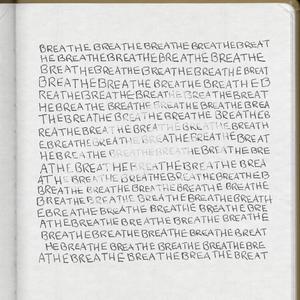 BREATHE BREATHE BREATHE BREATHE BREAT
HE BREATHE BREATHE BREATHE BREATHE
BREATHE BREATHE BREATHE BREATHE BREAT
BREATHE BREATHE BREATHE BREATHE B
REATHE BREATHE BREATHE BREATHE BREAT
HE BREATHE BREATHE BREATHE BREATHE BREA
THE BREATHE BREATHE BREATHE BREATHE B
REATHE BREATHE BREATHE BREATHE BREATH
E BREATHE BREATHE BREATHE BREATHE BREAT
HE BREATHE BREATHE BREATHE BREATHE BRE
ATHE BREATHE BREATHE BREATHE BREA
BREATHE BREATHE BREATHE BREATHE B
BREATHE BREATHE BREATHE BREATHE BREATHE
BREATHE BREATHE BREATHE BREATHE BREATH
E BREATHE BREATHE BREATHE BREATHE BRE
ATHE BREATHE BREATHE BREATHE BREATHE
BREATHE BREATHE BREATHE BREATHE BREAT
HE BREATHE BREATHE BREATHE BREATHE BRE
ATHE BREATHE BREATHE BREATHE BREAT